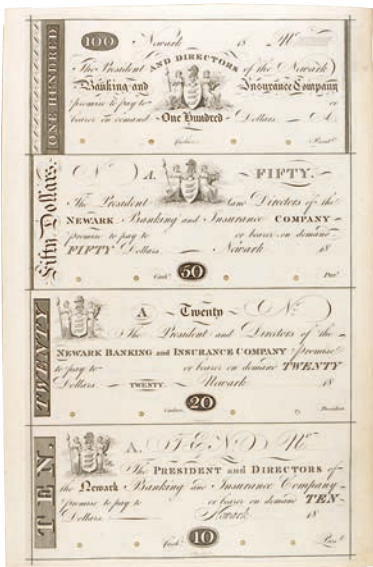 ONE HUNDRED
100 Newark 18 No
The President AND DIRECTORS of the Newark
Banking and Insurance Company
promise to pay to or
bearer on demand One Hundred Dollars A
Cashier Presidt
Fifty Dollars.
No A. FIFTY.
The President and Directors of the
NEWARK Banking and Insurance COMPANY
promise to pay to or bearer on demand
FIFTY Dollars. Newark 18
Cashr 50 Prest
TWENTY
A Twenty No
The President and Directors of the
NEWARK BANKING and INSURANCE COMPANY promise
to pay to or bearer on demand TWENTY
Dollars TWENTY. Newark 18
Cashier 20 President
TEN.
A. TEN No
The PRESIDENT and DIRECTORS of
the Newark Banking and Insurance Company
promise to pay to or bearer on demand TEN
Dollars Newark 18
Cashr 10 Prest